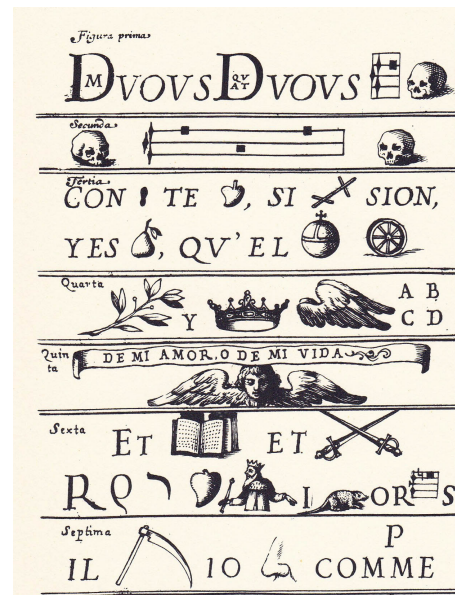 Figura prima
DVOVSDVOVS
M QVAT
Secunda
Tertia
CON TE , SI SION,
YES , QV'EL
Quarta
Y A B
C D
Quinta
DE MI AMOR, O DE MI VIDA
Sexta
ET ET
R I OR S
Septima
P
IL IO COMME